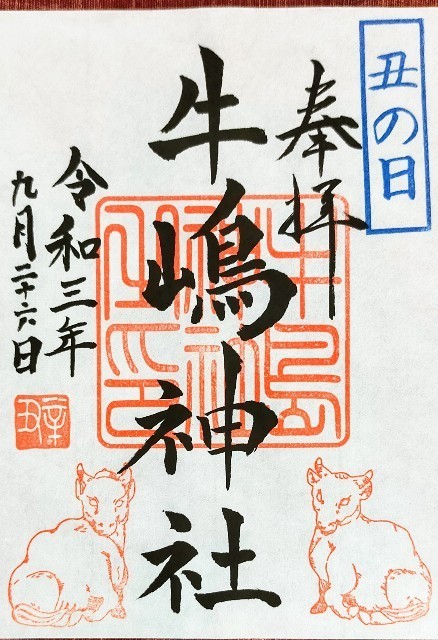 丑の日
奉拝
牛嶋神社
令和三年
九月二十六日
辛丑